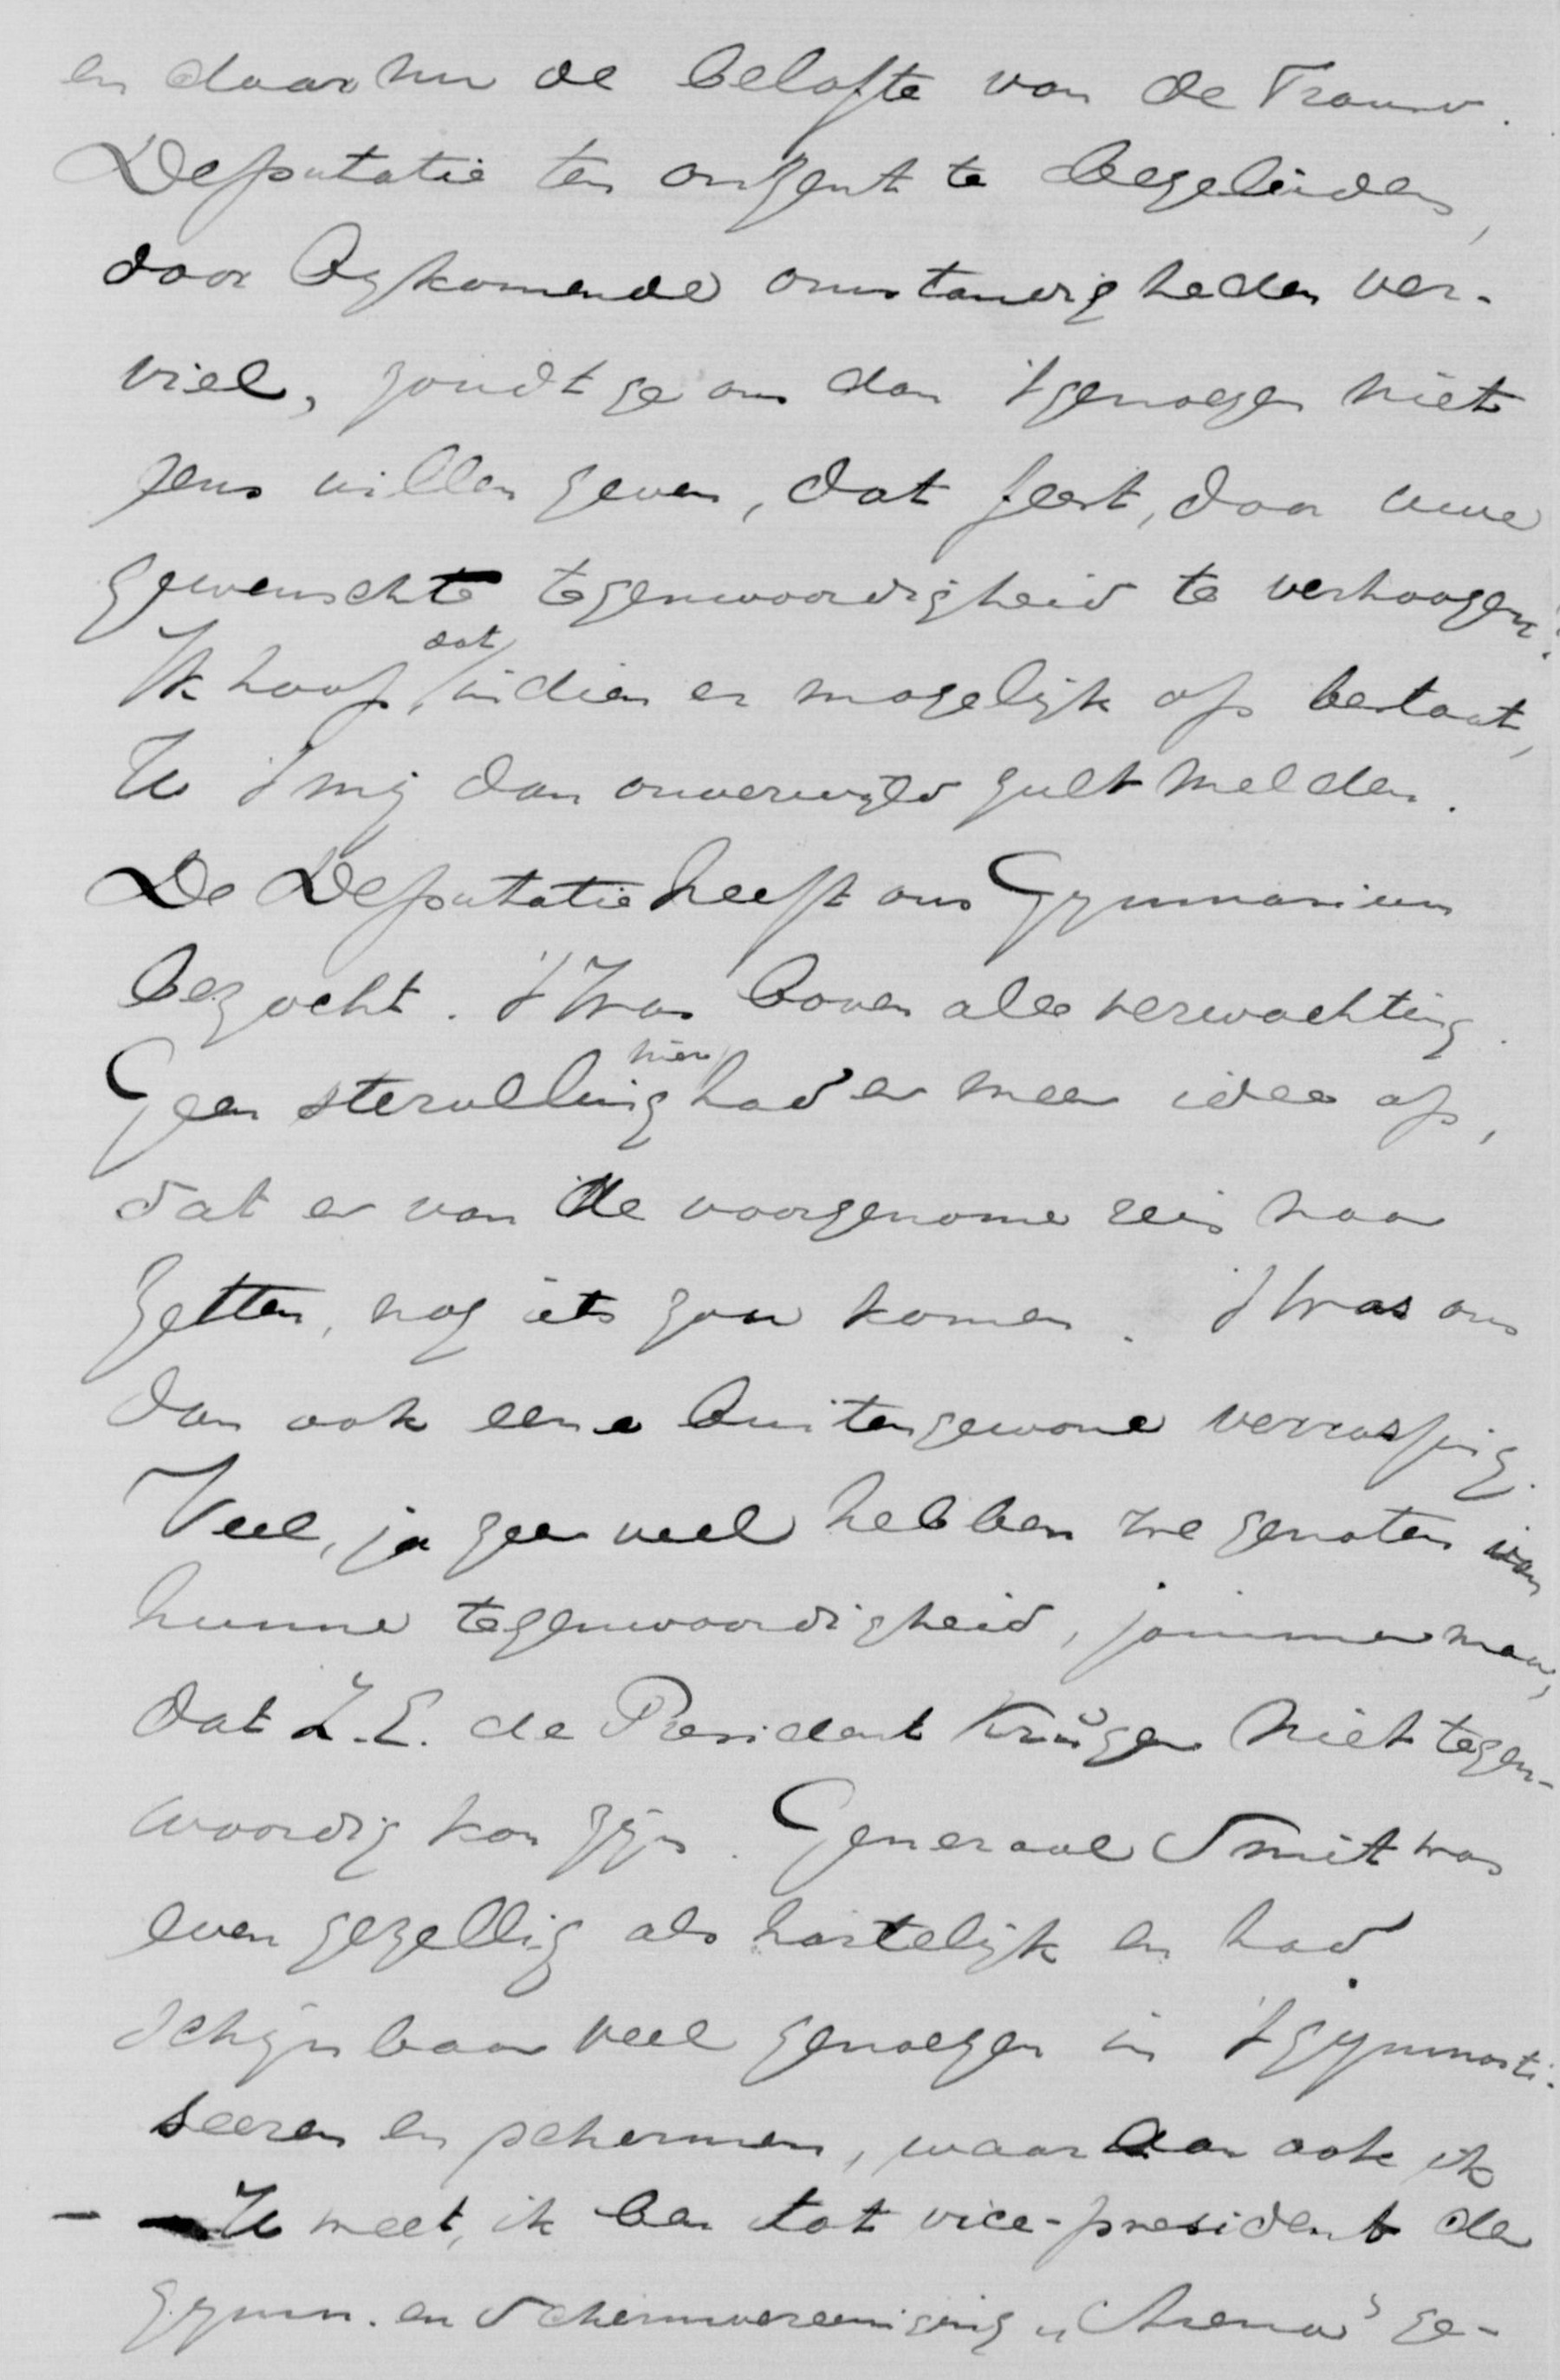 en daar nu de belofte van de Transv.
Deputatie ten onzent te begeleiden,
door bijkomende omstandigheden ver-
viel, zoudt ge ons dan 't genoegen niet
eens willen geven, dat feest, door uwe
gewenschte tegenwoordigheid te verhoogen?
Ik hoop, dat indien er mogelijk op bestaat,
U 't mij dan onverwijld zult melden.
De Deputatie heeft ons Gymnasium
bezocht. 't Was boven alle verwachting.
Geen sterveling hier had er meer idee op,
dat er van de voorgenome reis naar
Zetten, nog iets zou komen. 't Was ons
dan ook eene buitengewone verrassing.
Veel, ja zeer veel hebben we genoten van
hunne tegenwoordigheid, jammer maar,
dat Z.E. de President Krüger niet tegen-
woordig kon zijn. Generaal Smit was
even gezellig als hartelijk en had
schijnbaar veel genoegen in 't gymnasti-
seeren en schermen, waaraan ook ik
- U weet, ik ben tot vice-president der
gymn. en Schermvereeniging „Arena" ge-